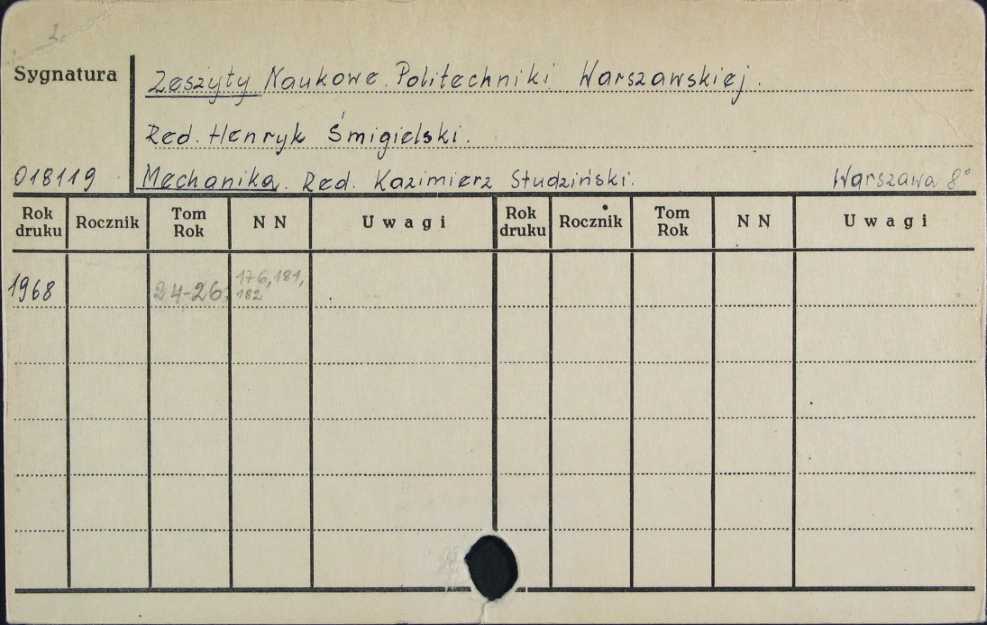 2.
Sygnatura Zeszyty Naukowe Politechniki Warszawskiej.
Red. Henryk Śmigielski.
018119 Mechanika. Red. Kazimierz Studziński. Warszawa 8°
Rok druku Rocznik Tom Rok N N Uwagi Rok druku Rocznik Tom Rok N N Uwagi
1968 24-26 176, 181, 182